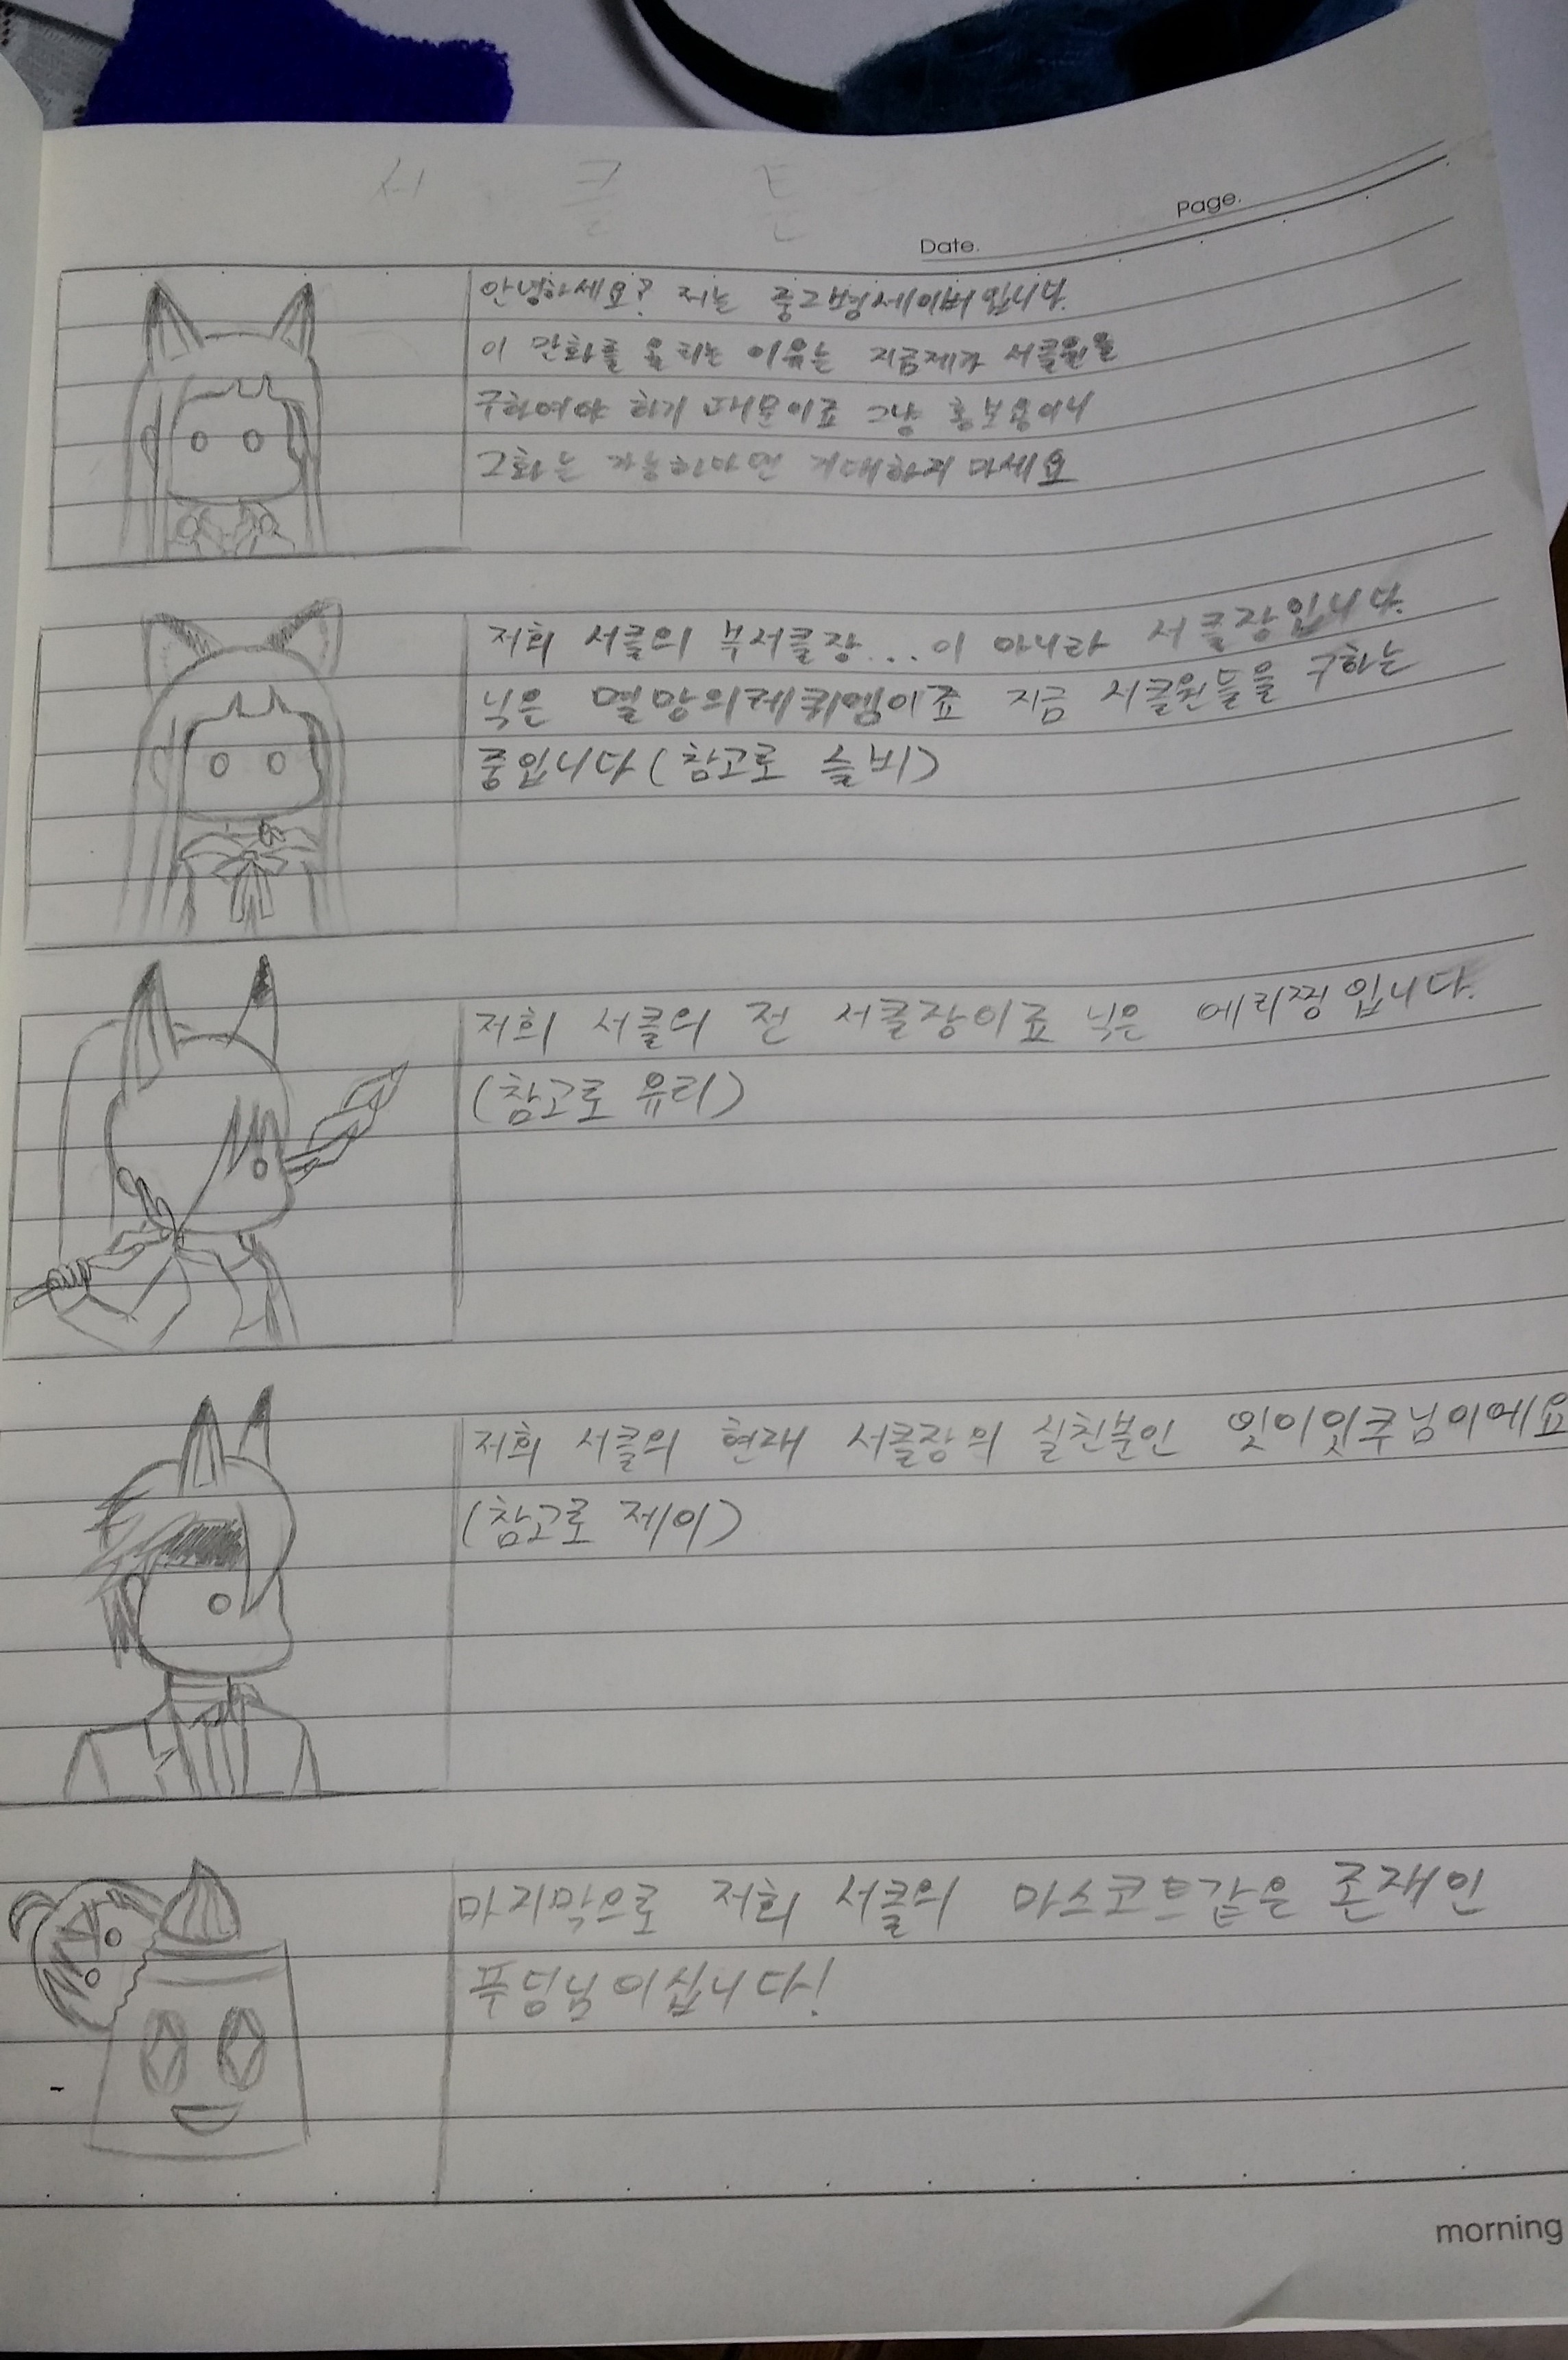 서 클 툰
Page.
Date.
안녕하세요? 저는 중2병세이버입니다.
이 만화를 올리는 이유는 지금제가 서클원을
구하여야 하기 때문이죠 그냥 홍보용이니
2화는 가능한다면 기대하지 마세요
저희 서클의 부서클장...이 아니라 서클장입니다.
닉은 멸망의레퀴엠이죠 지금 서클원들을 구하는
중입니다(참고로 슬비)
저희 서클의 전 서클장이죠 닉은 에리찡입니다.
(참고로 유리)
저희 서클의 현재 서클장의 실친분인 잇이잇쿠님이에요
(참고로 제이)
마지막으로 저희 서클의 마스코트같은 존재인
푸딩님이십니다!
morning